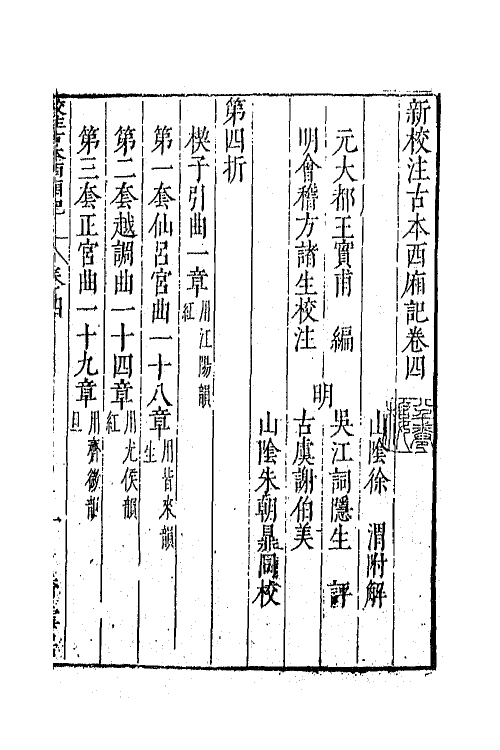 新校注古本西廂記卷四
山陰徐　渭附解
元大都王實甫　編
吳江詞隱生　評
明
明會稽方諸生校注
古虞謝伯美
山陰朱朝鼎同校
第四折
楔子引曲一章用江陽韻紅
第一套仙呂宮曲一十八章用皆來韻生
第二套越調曲一十四章用尤侯韻紅
第三套正宮曲一十九章用齊微韻旦
校注古本西廂記　卷四